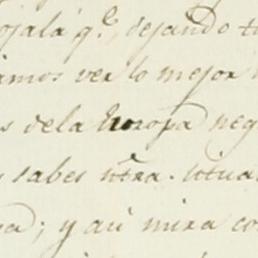 ojalá q.e dejando t
amos ver lo mejor
s dela Europa neg
s sabes ñtra. situa
a; y aci mira co